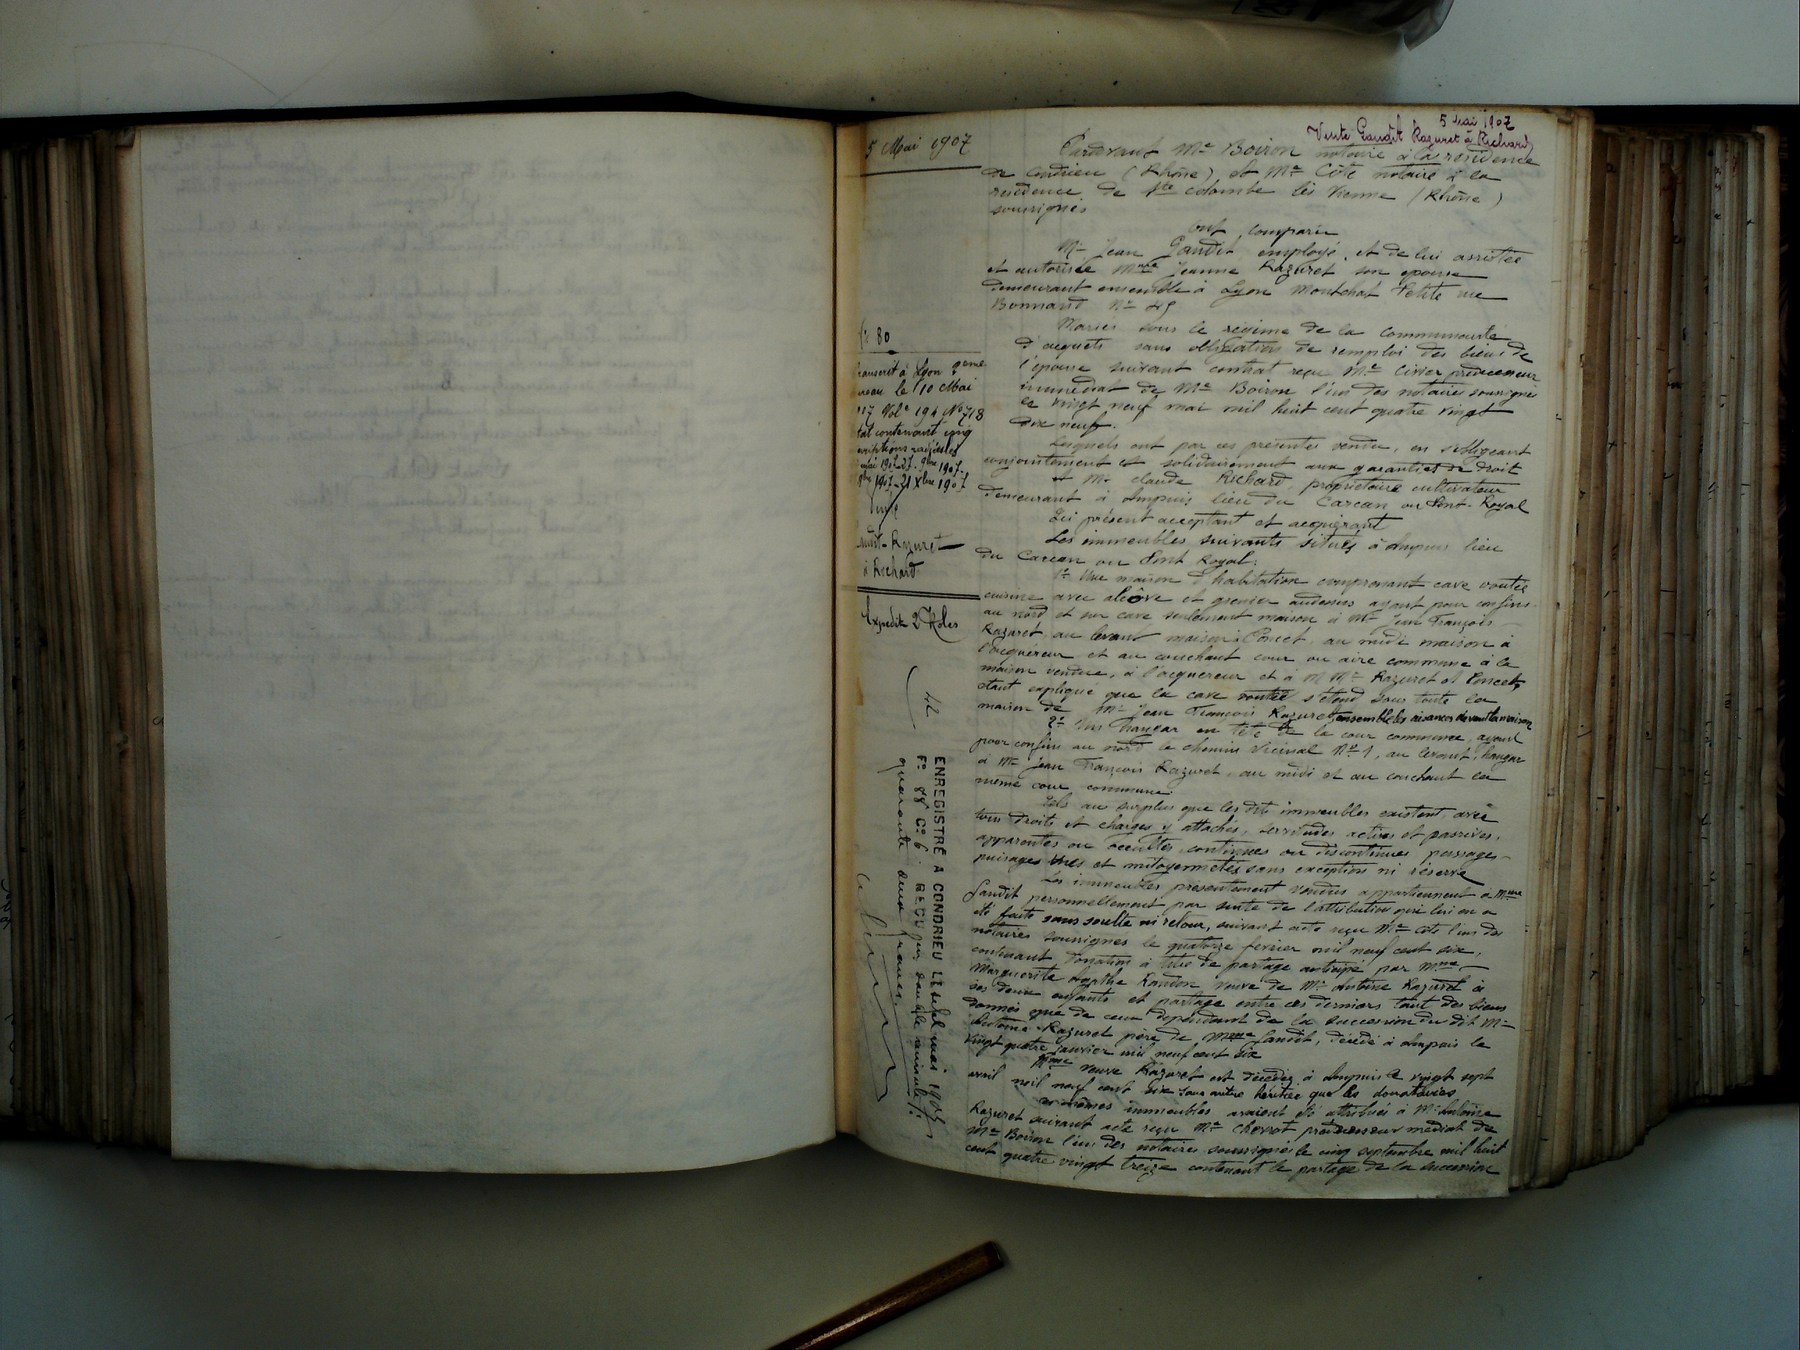 5 Mai 1907
5 mai 1907
Vente Gaudit Razuret à Richard
Pardevant Me Boiron notaire à la résidence
de Condrieu (Rhône) et Me Côte notaire à la
résidence de Ste Colombe lès Vienne (Rhône)
soussignés
Ont comparu
Mr Jean Gaudit employé, et de lui assistée
et autorisée Mme Jeanne Razuret son épouse
demeurant ensemble à Lyon Montchat Petite rue
Bonnand No
Mariés sous le régime de la communauté
d'acquets sans obligation de remploi des biens de
l'épouse suivant contrat reçu Me Civier prédécesseur
immédiat de Me Boiron l'un des notaires soussignés
le vingt neuf mai mil huit cent quatre vingt
dix neuf.
Lesquels ont par ces présentes vendu, en s'obligeant
conjointement et solidairement aux garanties de droit
à Mr Claude Richard propriétaire cultivateur
demeurant à Ampuis lieu du Carcan ou Pont-Royal
Ici présent acceptant et acquérant
Les immeubles suivants situés à Ampuis lieu
du Carcan ou Pont Royal:
1o Une maison d'habitation comprenant cave voutée
cuisine avec alcôve et grenier audessus ayant pour confins
au nord et sur cave seulement maison à Mr Jean François
Razuret, au levant maison à Poncet, au midi maison à
l'acquéreur et au couchant cour ou aire commune à la
maison vendue, à l'acquereur et à MMrs Razuret et Poncet,
étant expliqué que la cave voutée s'étend sous toute la
maison de Mr Jean François Razuret, ensemble les aisances devant la maison
2o Un hangar en tête de la cour commune, ayant
pour confins au nord le chemin vicinal No 1, au levant, hangar
à Mr Jean François Razuret, au midi et au couchant la
même cour commune
Tels au surplus que les dits immeubles existent avec
tous droits et charges y attachés, servitudes actives et passives,
apparentes ou occultes, continues ou discontinues passages
puisages vues et mitoyennetés sans exception ni réserve
Les immeubles présentement vendus appartiennent à Mme
Gaudit personnellement par suite de l'attribution qui lui en a
été faite sans soulte ni retour, suivant acte reçu Me Côte l'un des
notaires soussignés le quatorze février mil neuf cent six,
contenant donation à titre de partage anticipé par Mme
Marguerite Agathe veuve de Mr Antoine Razuret à
ses deux enfants et partage entre ces derniers tant des biens
donnés que de ceux dépendant de la succession du dit Mr
Antoine Razuret père de Mme Gaudit, décédé à Ampuis le
vingt quatre janvier mil neuf cent six
Mme veuve Razuret est décédée à Ampuis le vingt sept
avril mil neuf cent six sans autre héritier que les donataires
Les mêmes immeubles avaient été attribués à Mr Antoine
Razuret suivant acte reçu Me Chevrot prédécesseur médiat de
Me Boiron l'un des notaires soussignés le cinq septembre mil huit
cent quatre vingt treize contenant le partage de la succession
No 80
Transcrit à Lyon 2eme
bureau le 10 Mai
1907 Vole 194 No 718
état contenant cinq
inscriptions
mai 1907 - 27 9bre 1907.
9bre 1907 - 21 Xbre 1907
Vente
Gaudit-Razuret
à Richard
Expédit 2 Roles
42
ENREGISTRÉ A CONDRIEU LE sept mai 1907
Fo 88 Co 6 REÇU
quarante deux francs